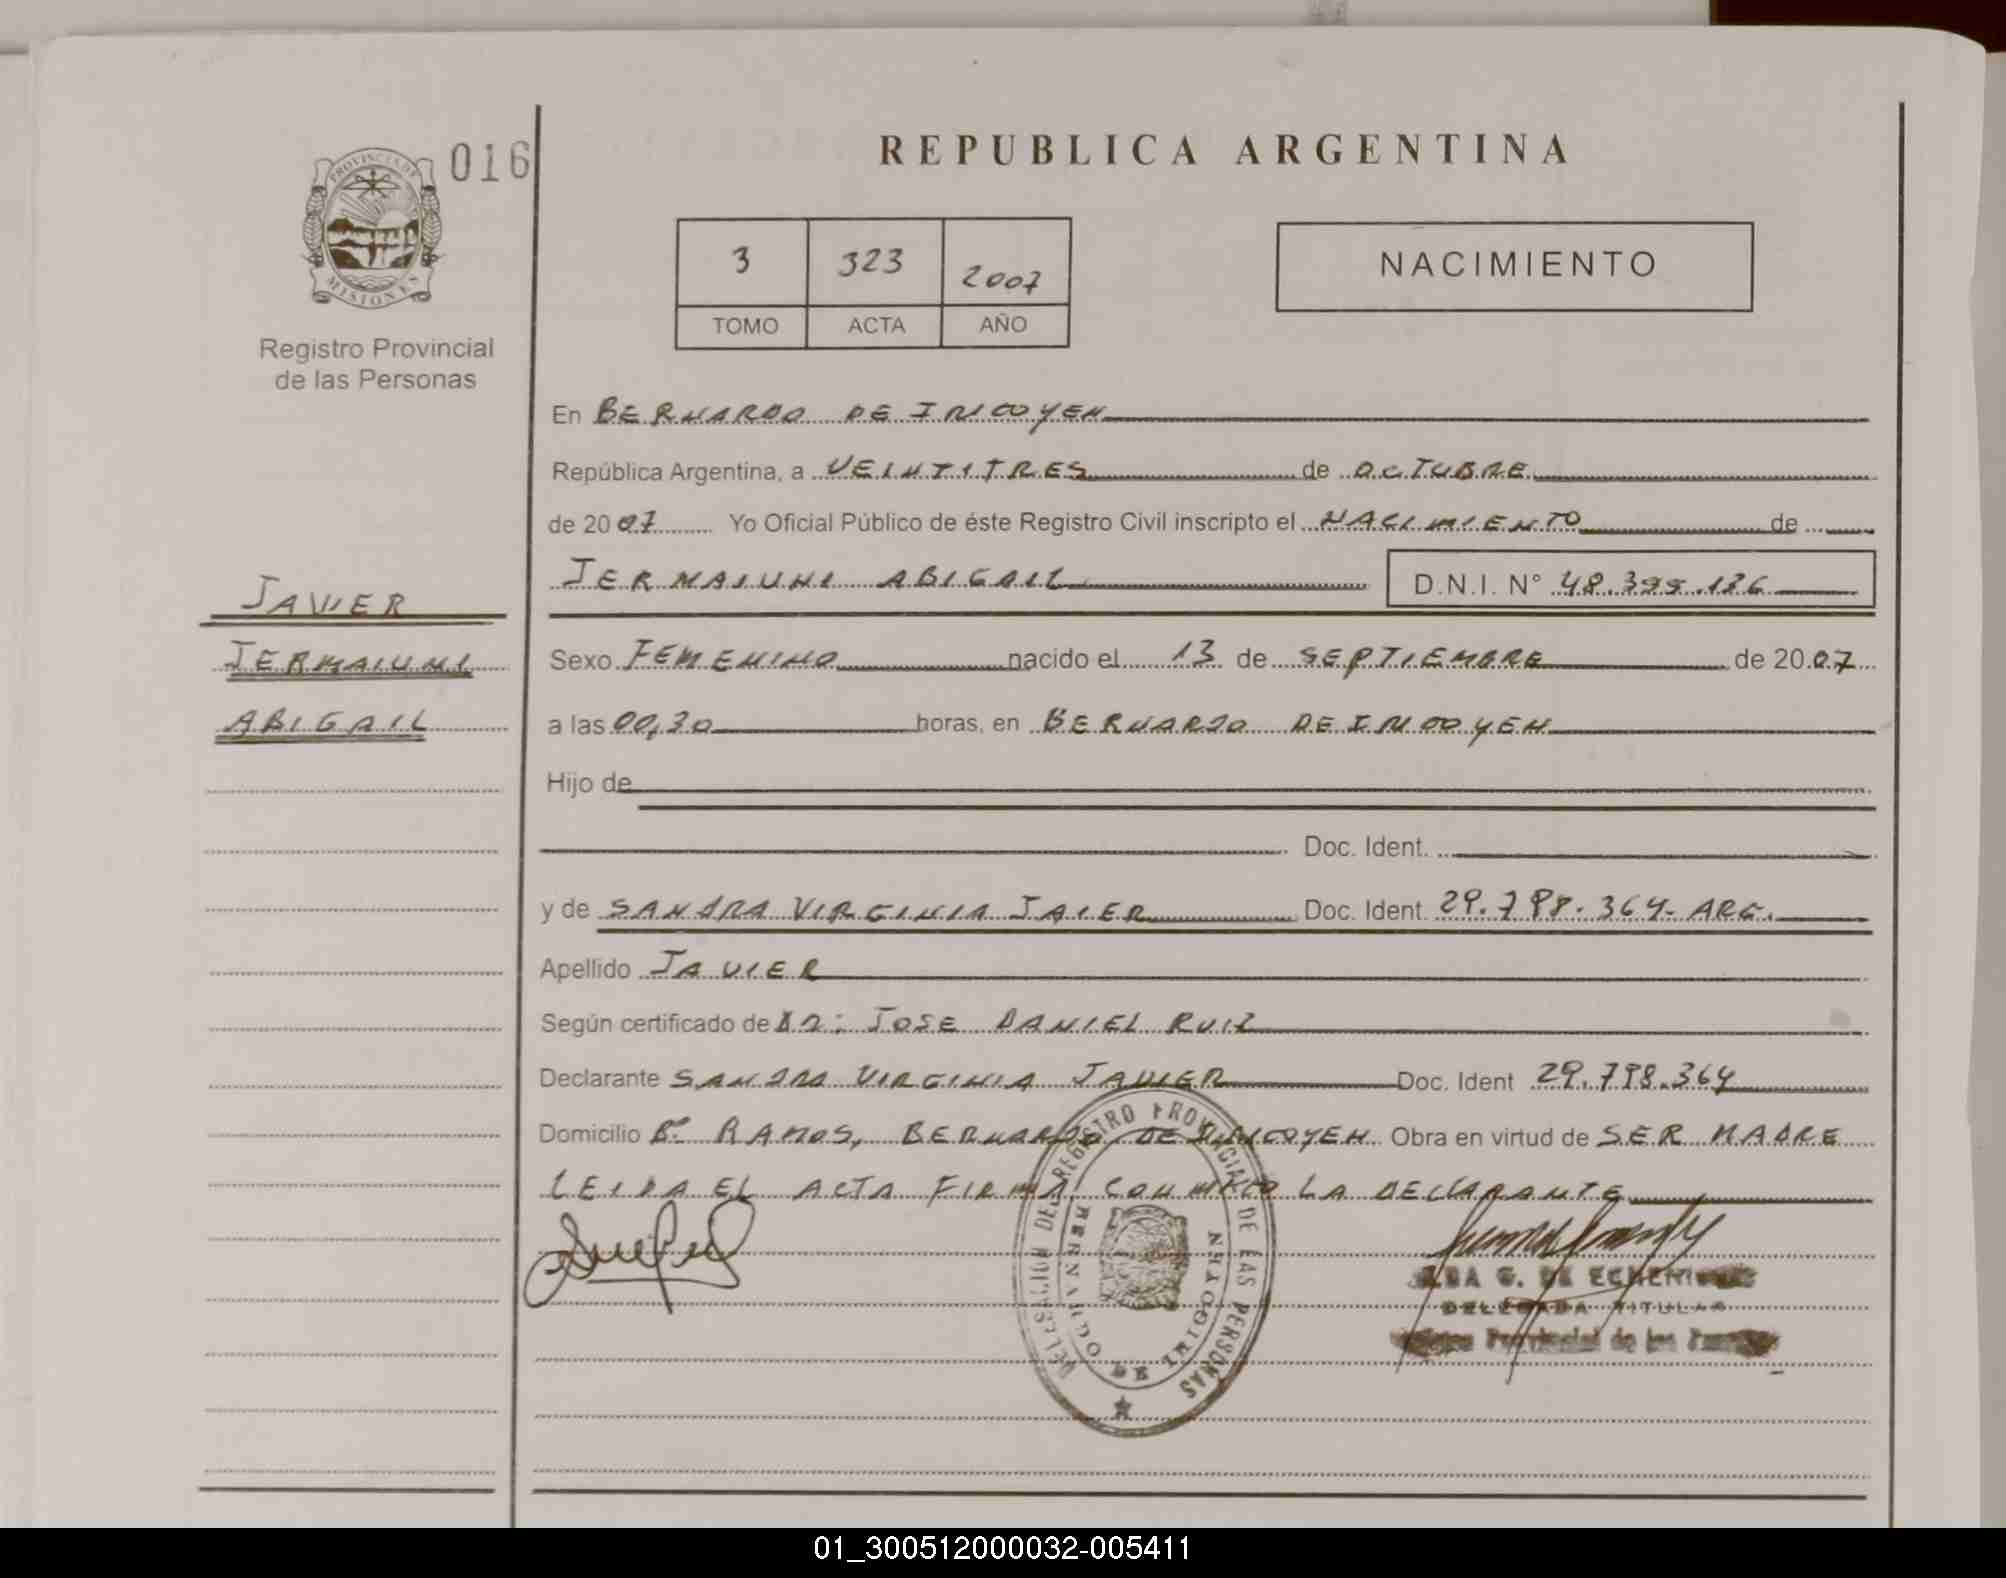 REPUBLICA ARGENTINA
PROVINCIA DE
MISIONES
016
Registro Provincial
de las Personas
3 323 2007
TOMO ACTA AÑO
NACIMIENTO
En BERNARDO DE IRIGOYEN
República Argentina, a VEINTITRES de OCTUBRE
de 2007 Yo Oficial Público de éste Registro Civil inscripto el NACIMIENTO de
JERMAIUNI ABIGAIL D.N.I. N° 48.399.136
JAVIER
JERMAIUNI
ABIGAIL
Sexo FEMENINO nacido el 13 de SEPTIEMBRE de 2007
a las 00,30 horas, en BERNARDO DE IRIGOYEN
Hijo de
Doc. Ident.
y de SANDRA VIRGINIA JAIER Doc. Ident. 29.798.364- ARG.
Apellido JAVIER
Según certificado de DR: JOSE DANIEL RUIZ
Declarante SANDRA VIRGINIA JAVIER Doc. Ident 29.798.364
Domicilio Bº RAMOS, BERNARDO DE IRIGOYEN Obra en virtud de SER MADRE
LEIDA EL ACTA FIRMA CONMIGO LA DECLARANTE
DELEGACION DEL REGISTRO PROVINCIAL DE LAS PERSONAS
BERNARDO DE IRIGOYEN
G. DE
DELEGADA TITULAR
Provincial de las
01_300512000032-005411